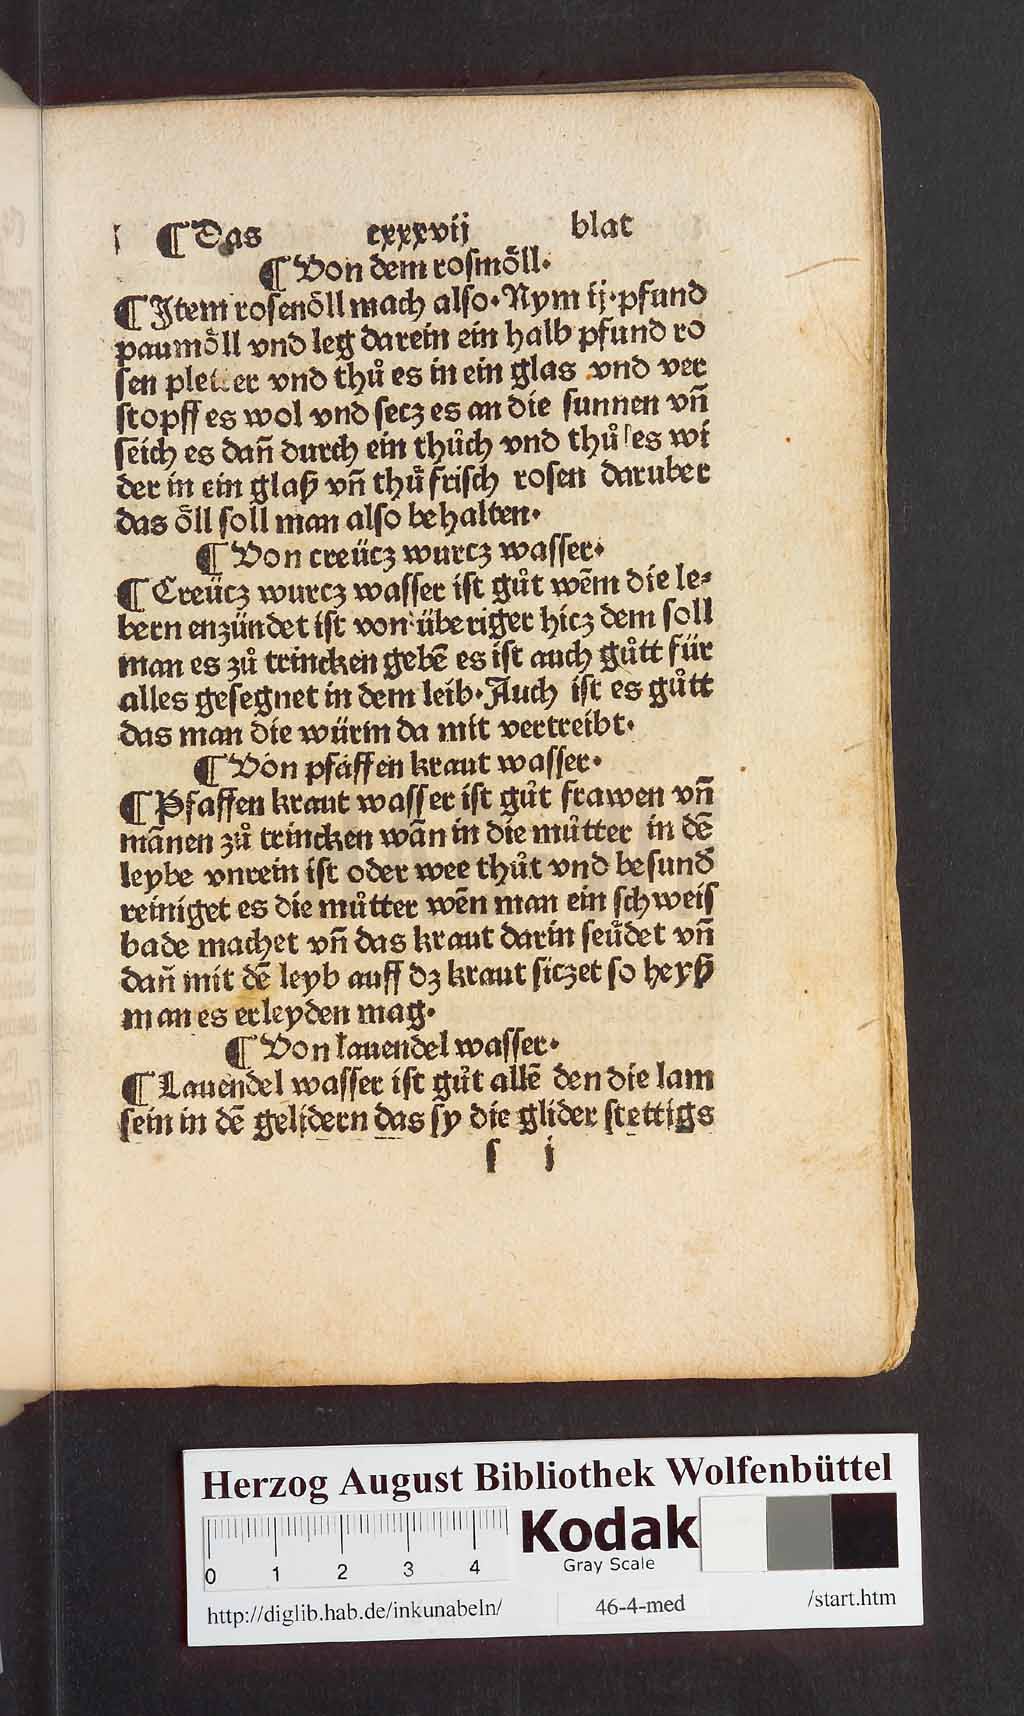 ¶ Das cxxxvij blat
¶ Von dem rosmo̎ll.
¶ Jtem rosenöll mach also. Nym ij. pfund
paumöll vnd leg darein ein halb pfund ro
sen pletter vnd thů es in ein glas vnd ver
stopff es wol vnd secz es an die sunnen vn̄
seich es dan̄ durch ein thůch vnd thů es wi
der in ein glaß vn̄ thů frisch rosen daruber
das öll soll man also behalten.
¶ Von creücz wurcz wasser.
¶ Creücz wurcz wasser ist gůt wēm die le⸗
bern enzündet ist von überiger hicz dem soll
man es zů trincken gebē es ist auch gůtt für
alles gesegnet in dem leib. Auch ist es gůtt
das man die würm da mit vertreibt.
¶ Von pfäffen kraut wasser.
¶ Pfaffen kraut wasser ist gůt frawen vn̄
mānen zů trincken wān in die můtter in dē
leybe vnrein ist oder wee thůt vnd besund
reiniget es die můtter wēn man ein schweis
bade machet vn̄ das kraut darin seůdet vn̄
dan̄ mit dē leyb auff dz kraut siczet so heyß
man es erleyden mag.
¶ Von lauendel wasser.
¶ Lauendel wasser ist gůt allē den die lam
sein in dē gelidern das sy die glider stettigs
s j
Herzog August Bibliothek Wolfenbüttel
0 1 2 3 4
Kodak
Gray Scale
http://diglib.hab.de/inkunabeln/ 46-4-med /start.htm